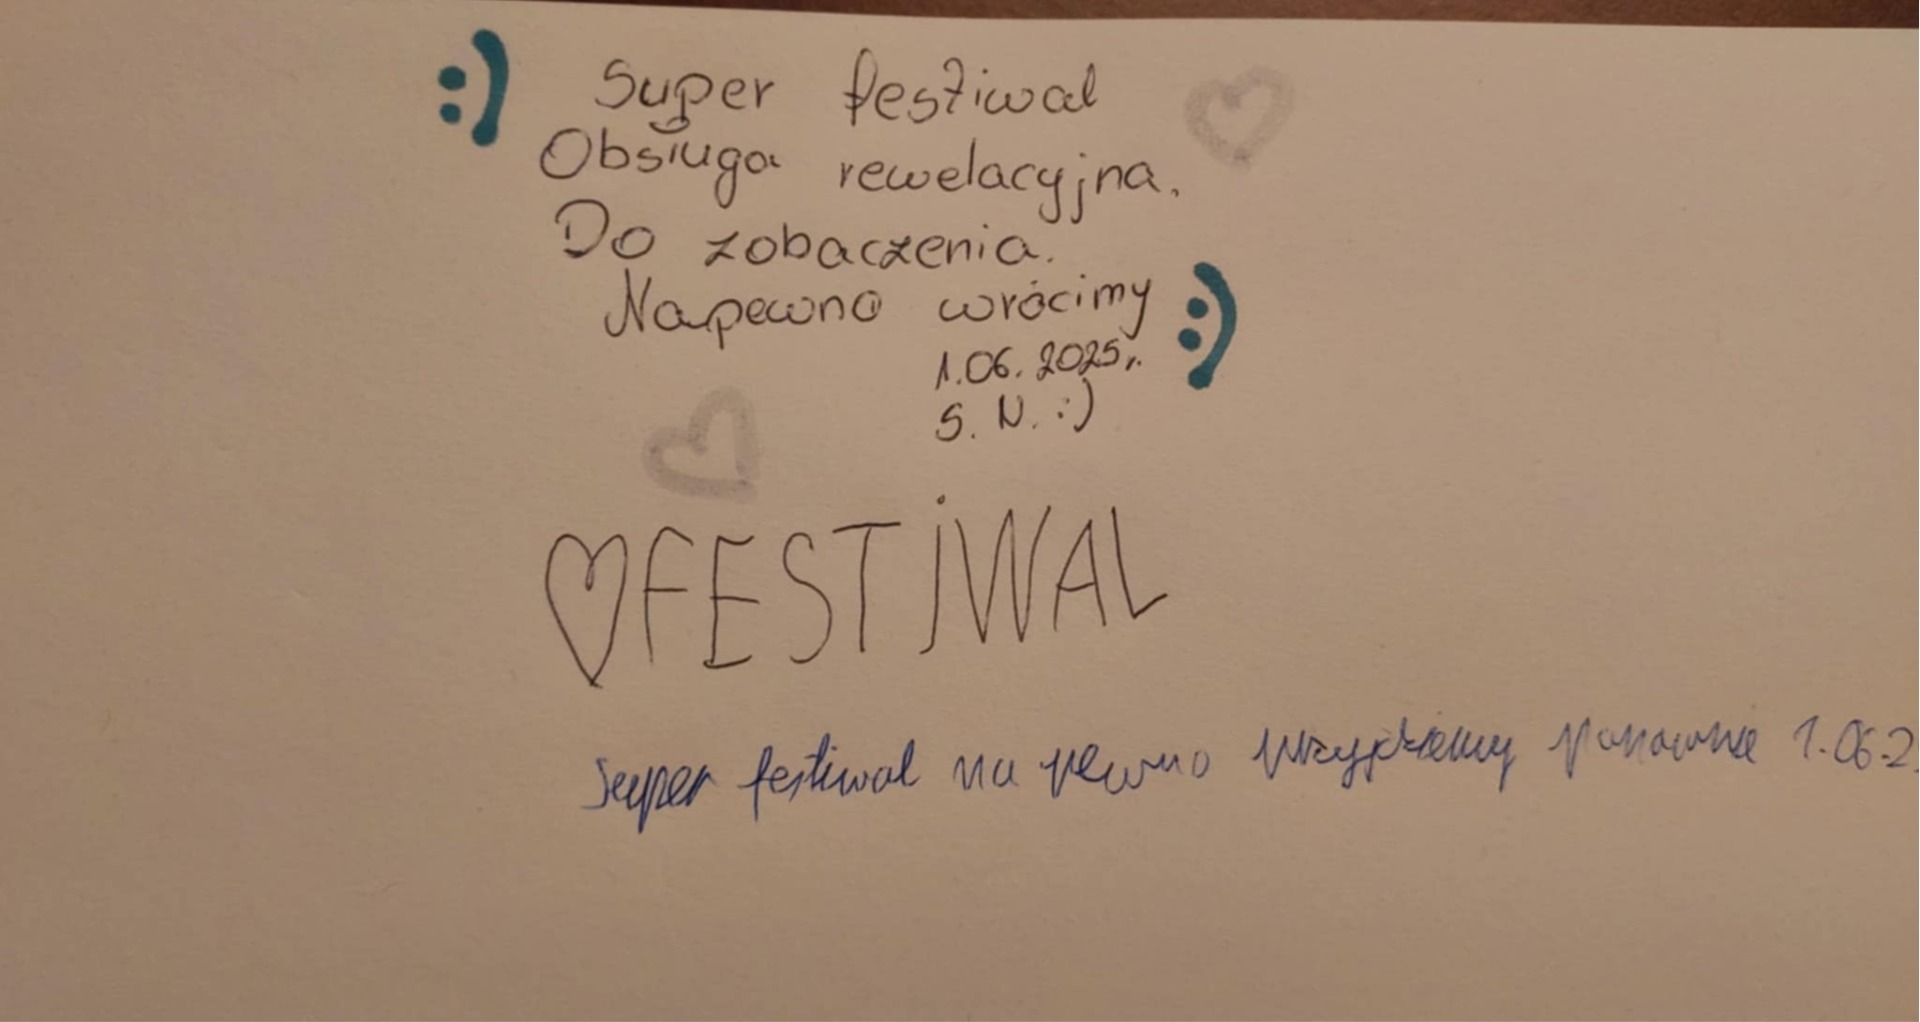 :) Super festiwal
Obsługa rewelacyjna.
Do zobaczenia.
Napewno wrócimy :)
1.06.2025r.
S. N. :)
♡FESTiWAL
Super festiwal na pewno przyjdziemy ponownie 1.06.2